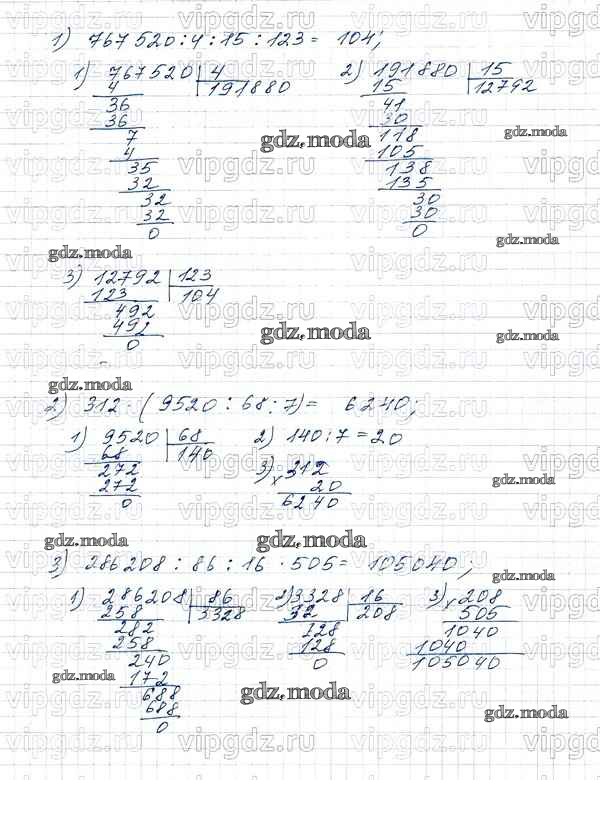 1) 767520 : 4 : 15 : 123 = 104;
1) 767520 | 4
4 191880
36
36
7
4
35
32
32
32
0
2) 191880 | 15
15 12792
41
30
118
105
138
135
30
30
0
3) 12792 | 123
123 104
492
492
0
2) 312 · (9520 : 68 : 7) = 6240;
1) 9520 | 68
68 140
272
272
0
2) 140 : 7 = 20
3) × 312
20
6240
3) 286208 : 86 : 16 · 505 = 105040;
1) 286208 | 86
258 3328
282
258
240
172
688
688
0
2) 3328 | 16
32 208
128
128
0
3) × 208
505
1040
1040
105040
gdz.moda
vipgdz.ru